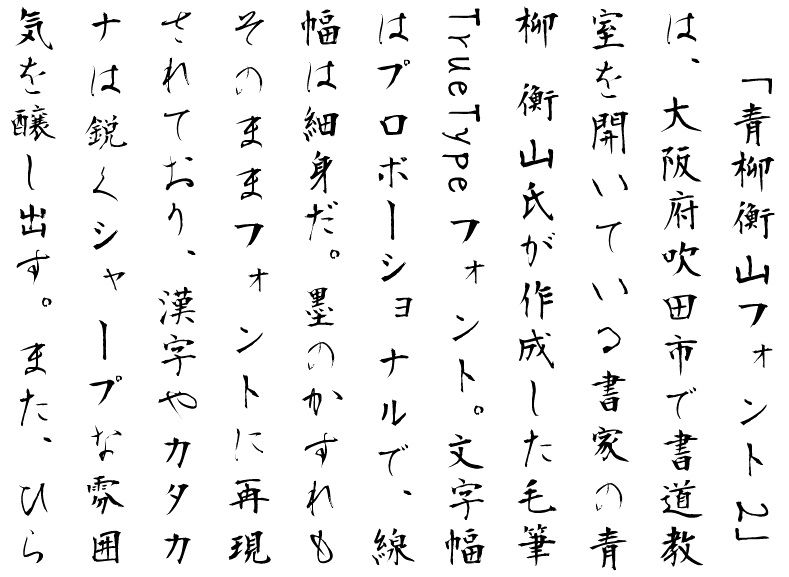 「青柳衡山フォント2」
は、大阪府吹田市で書道教
室を開いている書家の青
柳 衡山氏が作成した毛筆
TrueTypeフォント。文字幅
はプロポーショナルで、線
幅は細身だ。墨のかすれも
そのままフォントに再現
されており、漢字やカタカ
ナは鋭くシャープな雰囲
気を醸し出す。また、ひら